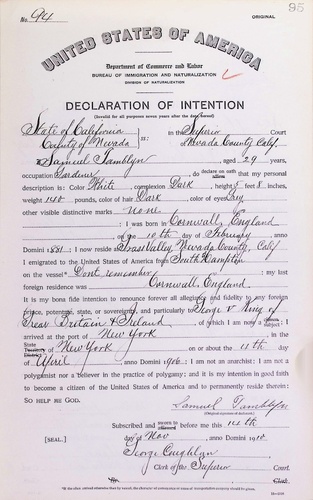 No. 94
ORIGINAL
95
UNITED STATES OF AMERICA
Department of Commerce and Labor
BUREAU OF IMMIGRATION AND NATURALIZATION
DIVISION OF NATURALIZATION
DECLARATION OF INTENTION
(Invalid for all purposes seven years after the date hereof)
State of California
County of Nevada ss:
In the Superior Court
Nevada County Calif.
I, Samuel Tamblyn, aged 29 years,
occupation Gardener, do declare on oath affirm that my personal
description is: Color White, complexion Dark, height 5 feet 8 inches,
weight 140 pounds, color of hair Dark color of eyes
other visible distinctive marks none
I was born in Cornwall, England
on the 10th day of February, anno
Domini 1881; I now reside at Grass Valley, Nevada County, Calif
I emigrated to the United States of America from South Hampton
on the vessel* Dont remember; my last
foreign residence was Cornwall, England.
It is my bona fide intention to renounce forever all allegiance and fidelity to any foreign
prince, potentate, state, or sovereignty, and particularly to George V King of
Great Britain & Ireland, of which I am now a subject; I
arrived at the port of New York, in the
State Territory District of New York on or about the 11th day
of April, anno Domini 1906; I am not an anarchist; I am not a
polygamist nor a believer in the practice of polygamy; and it is my intention in good faith
to become a citizen of the United States of America and to permanently reside therein:
SO HELP ME GOD.
Samuel Tamblyn
(Original signature of declarant)
Subscribed and sworn to affirmed before me this 14th
[SEAL.] day of Nov, anno Domini 1910
George Coughlan
Clerk of the Superior Court.